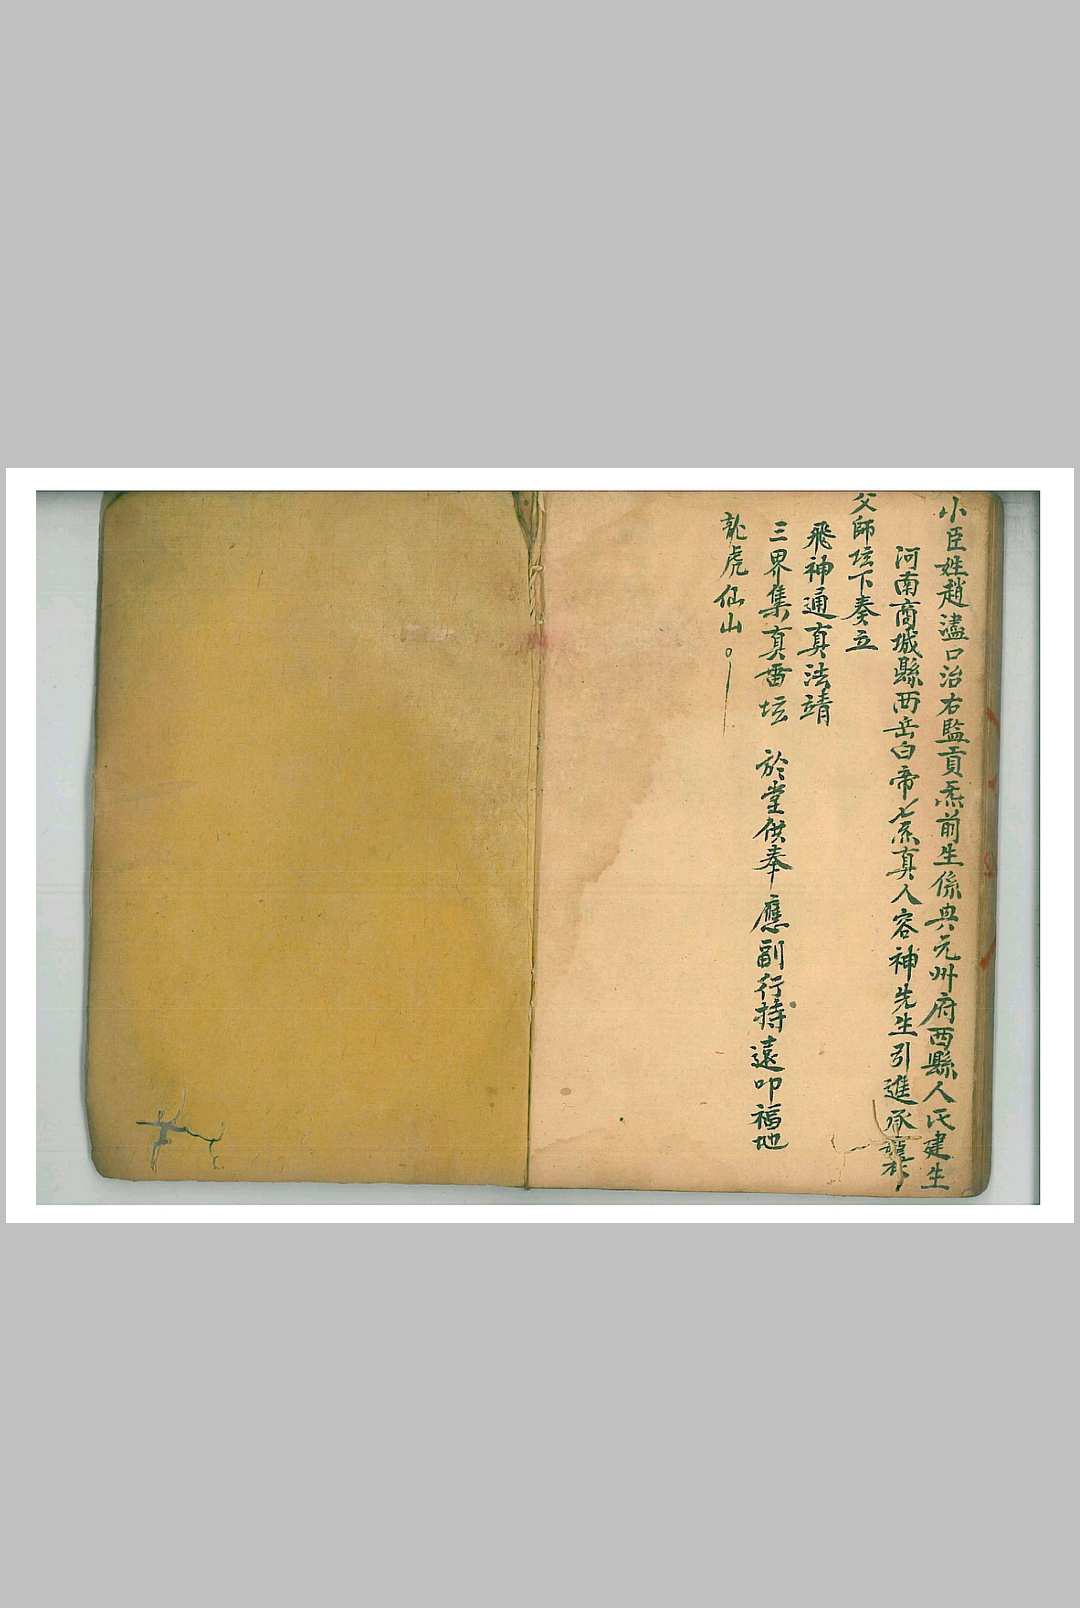 小臣姓趙濜口治右監貢炁前生係典元州府西縣人氏建生
河南商城縣西岳白帝七炁真人容神先生引進承
父師坛下奏立
飛神通真法靖
三界集真雷坛 於堂供奉應副行持遠叩福地
龍虎仙山。